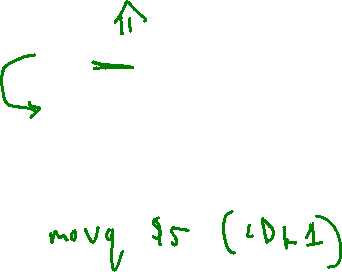 movq $5 (LDL1)